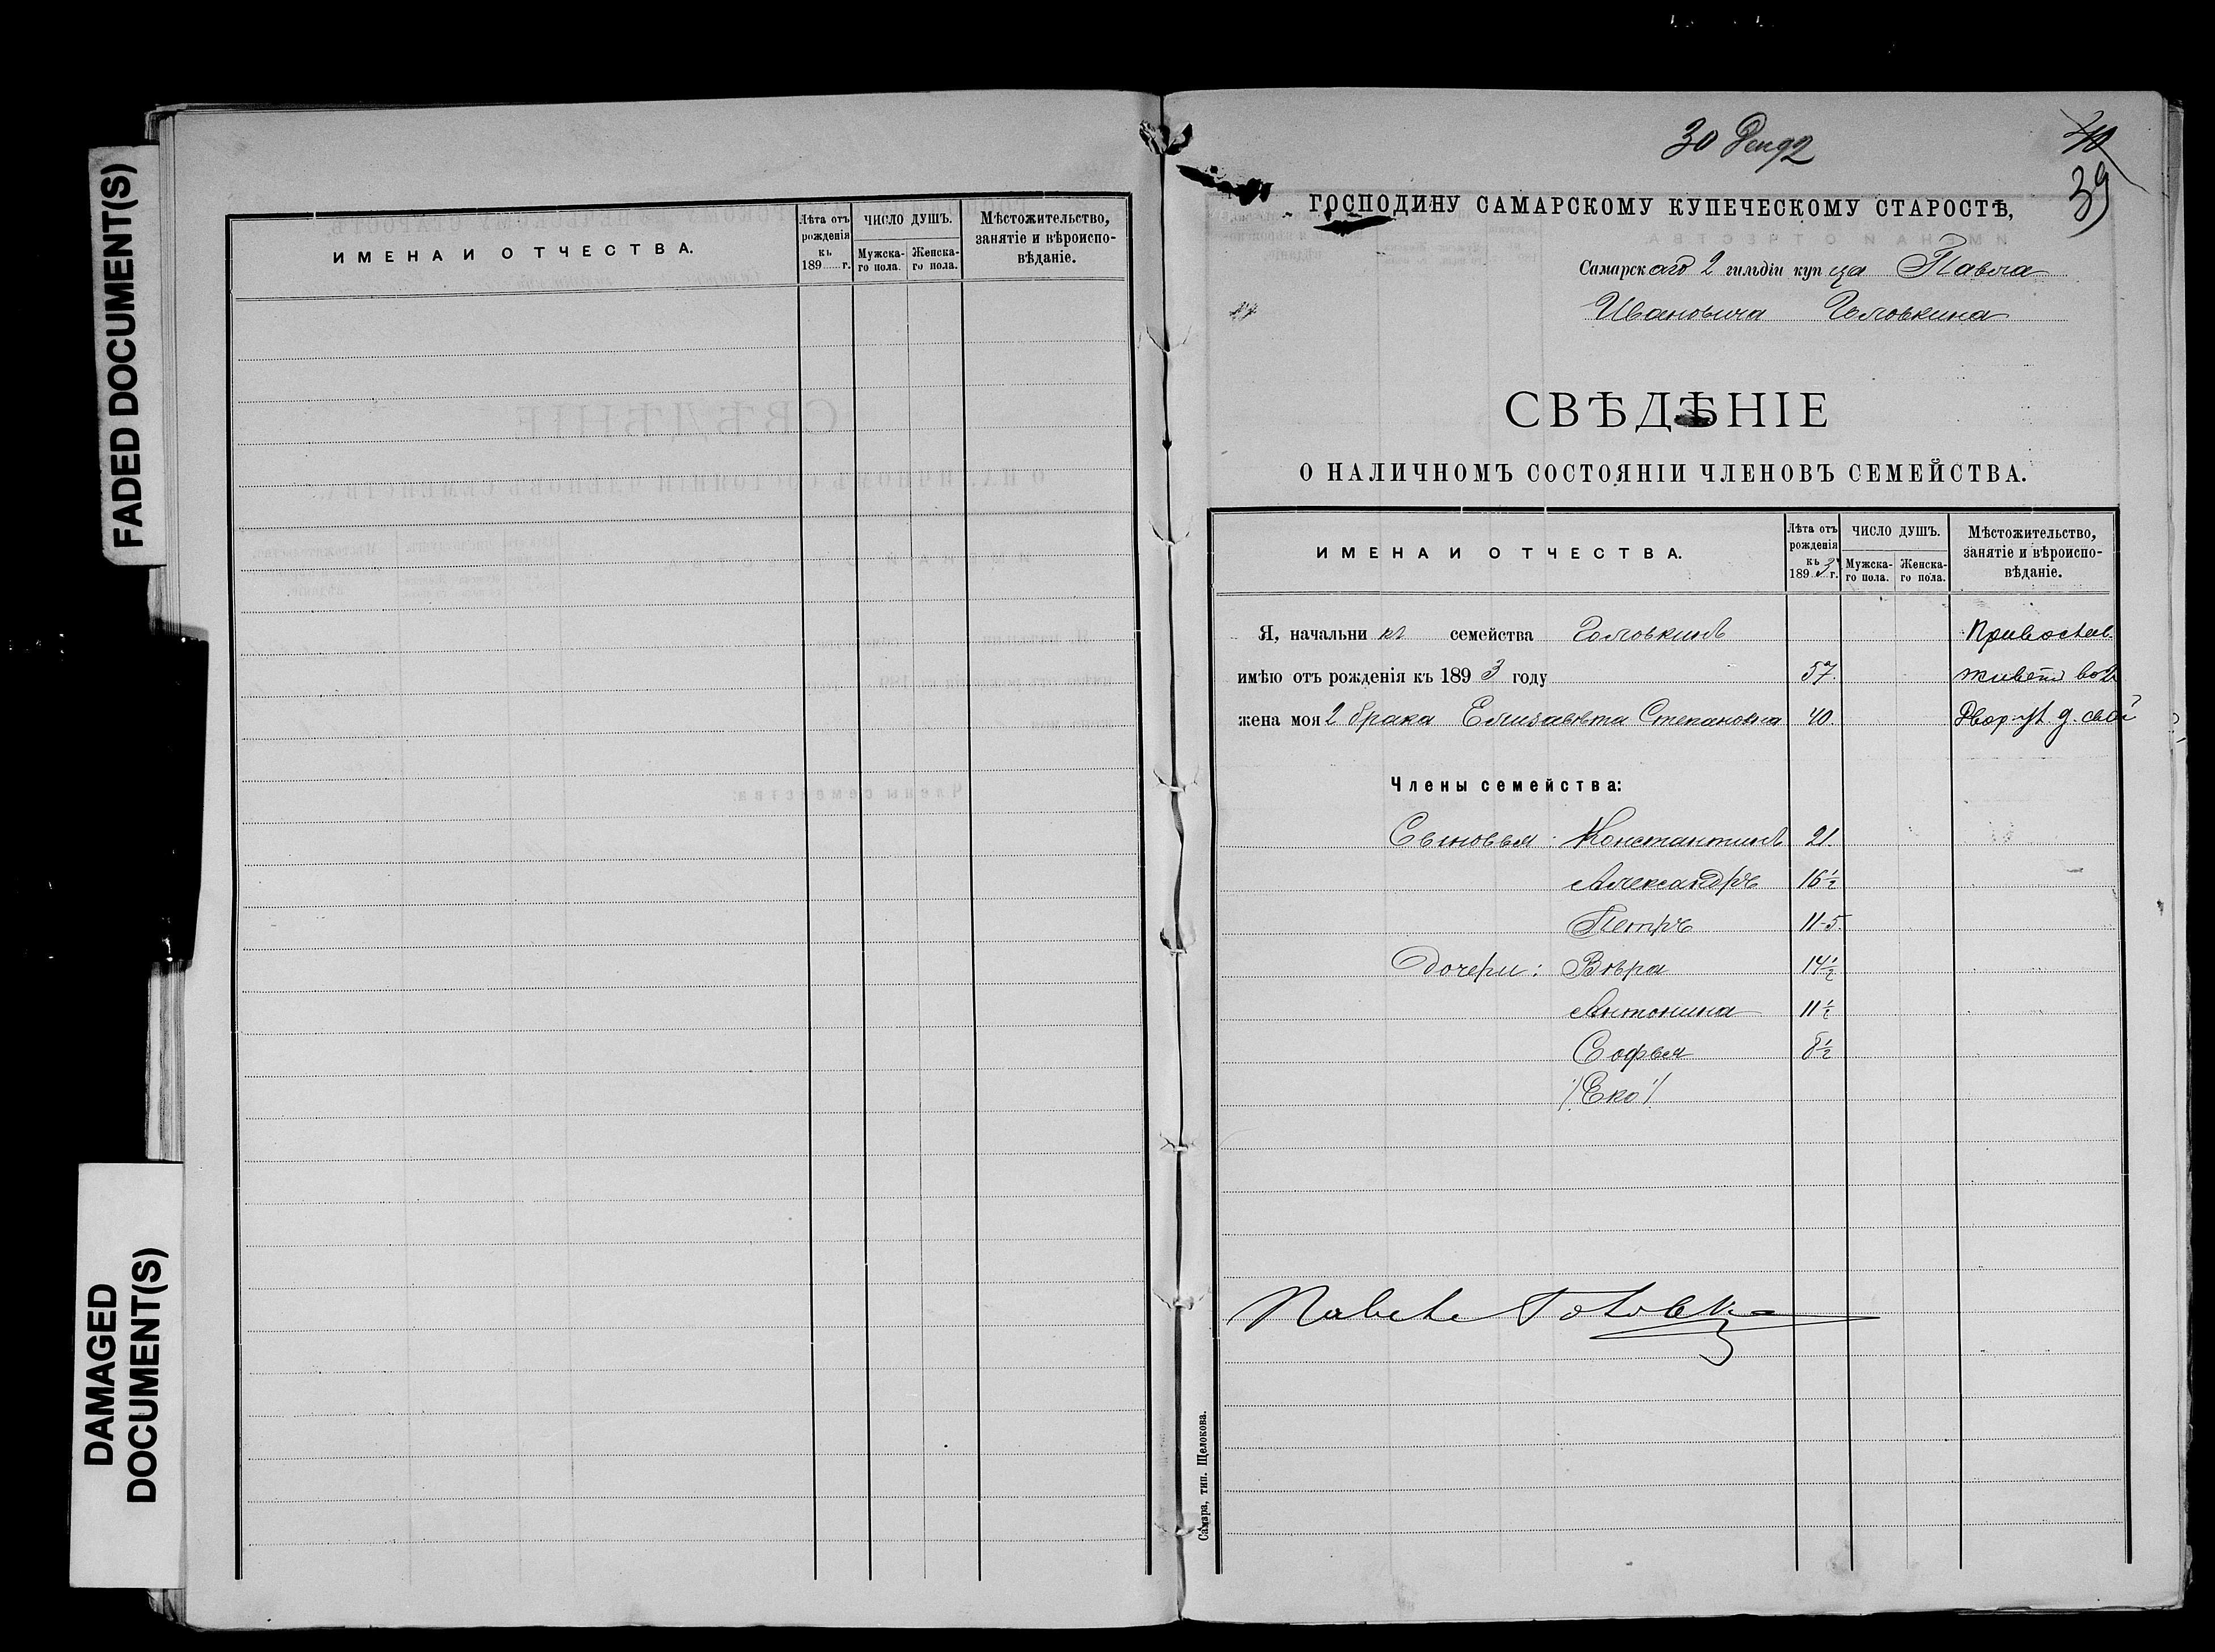 FADED DOCUMENT(S)
DAMAGED
DOCUMENT(S)
ИМЕНА И ОТЧЕСТВА.
Лѣта отъ рожденія къ 189 г.
ЧИСЛО ДУШЪ.
Мужска-го пола.
Женска-го пола.
Мѣстожительство, занятіе и вѣроиспо-вѣданіе.
30 Дек 92
40
39
ГОСПОДИНУ САМАРСКОМУ КУПЕЧЕСКОМУ СТАРОСТѢ,
Самарскаго 2 гильдіи купца Павла
Ивановича Головкина
СВѢДѢНІЕ
О НАЛИЧНОМЪ СОСТОЯНІИ ЧЛЕНОВЪ СЕМЕЙСТВА.
ИМЕНА И ОТЧЕСТВА.
Лѣта отъ рожденія къ 1893 г.
ЧИСЛО ДУШЪ.
Мужска-го пола.
Женска-го пола.
Мѣстожительство, занятіе и вѣроиспо-вѣданіе.
Я, начальникъ семейства Головкинъ
имѣю отъ рожденія къ 1893 году 57. живетъ
жена моя 2 брака Елизавѣта Степановна 40 Двор. ул. д. свой
Члены семейства:
Сыновья: Константинъ 21.
Александръ 16½
Петръ 11-5.
Дочери: Вѣра 14½
Антонина 11½
Софья 8½
Павелъ Головки
Самара, тип. Щелокова.